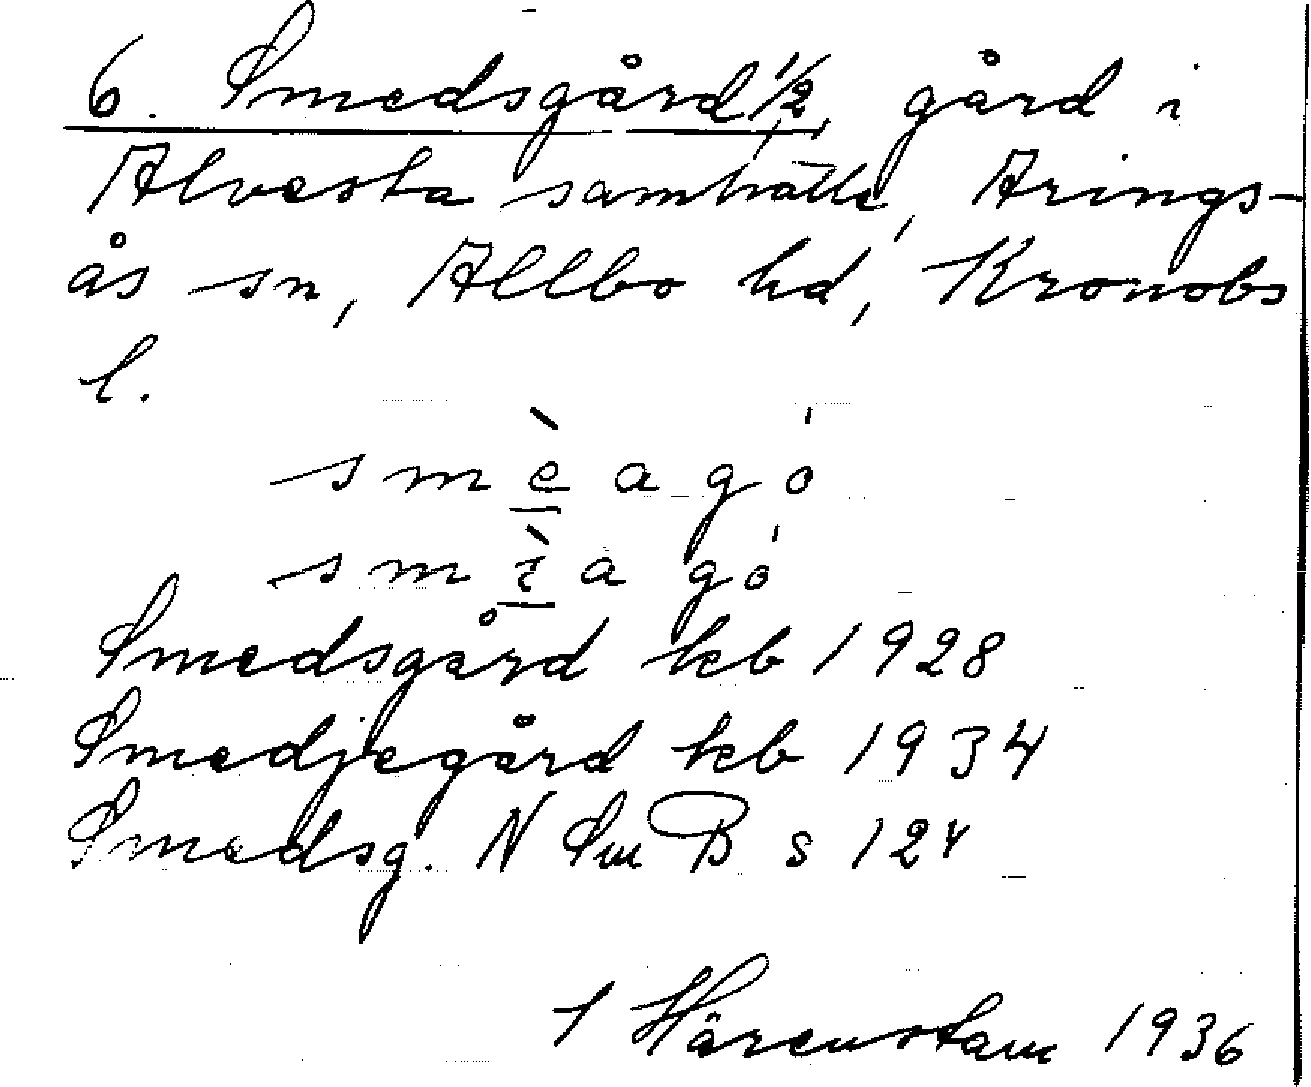 6. Smedsgård 1/2, gård i
Alvesta samhälle, Arings-
ås sn, Allbo hd, Kronobs
l.
smèagó
smìagó
Smedsgård kb 1928
Smedjegård kb 1934
Smedsg. N Sm B s 124
I Härenstam 1936